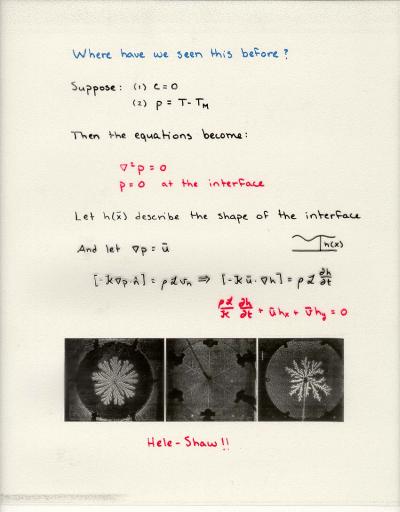 Where have we seen this before?
Suppose: (1) c = 0
(2) p = T - T_M
Then the equations become:
∇²p = 0
p = 0 at the interface
Let h(x̄) describe the shape of the interface
And let ∇p = ū
h(x)
[-k∇p·n̂] = ρℒv_n ⇒ [-kū·∇h] = ρℒ ∂h/∂t
ρℒ/k ∂h/∂t + ūh_x + v̄h_y = 0
Hele-Shaw!!